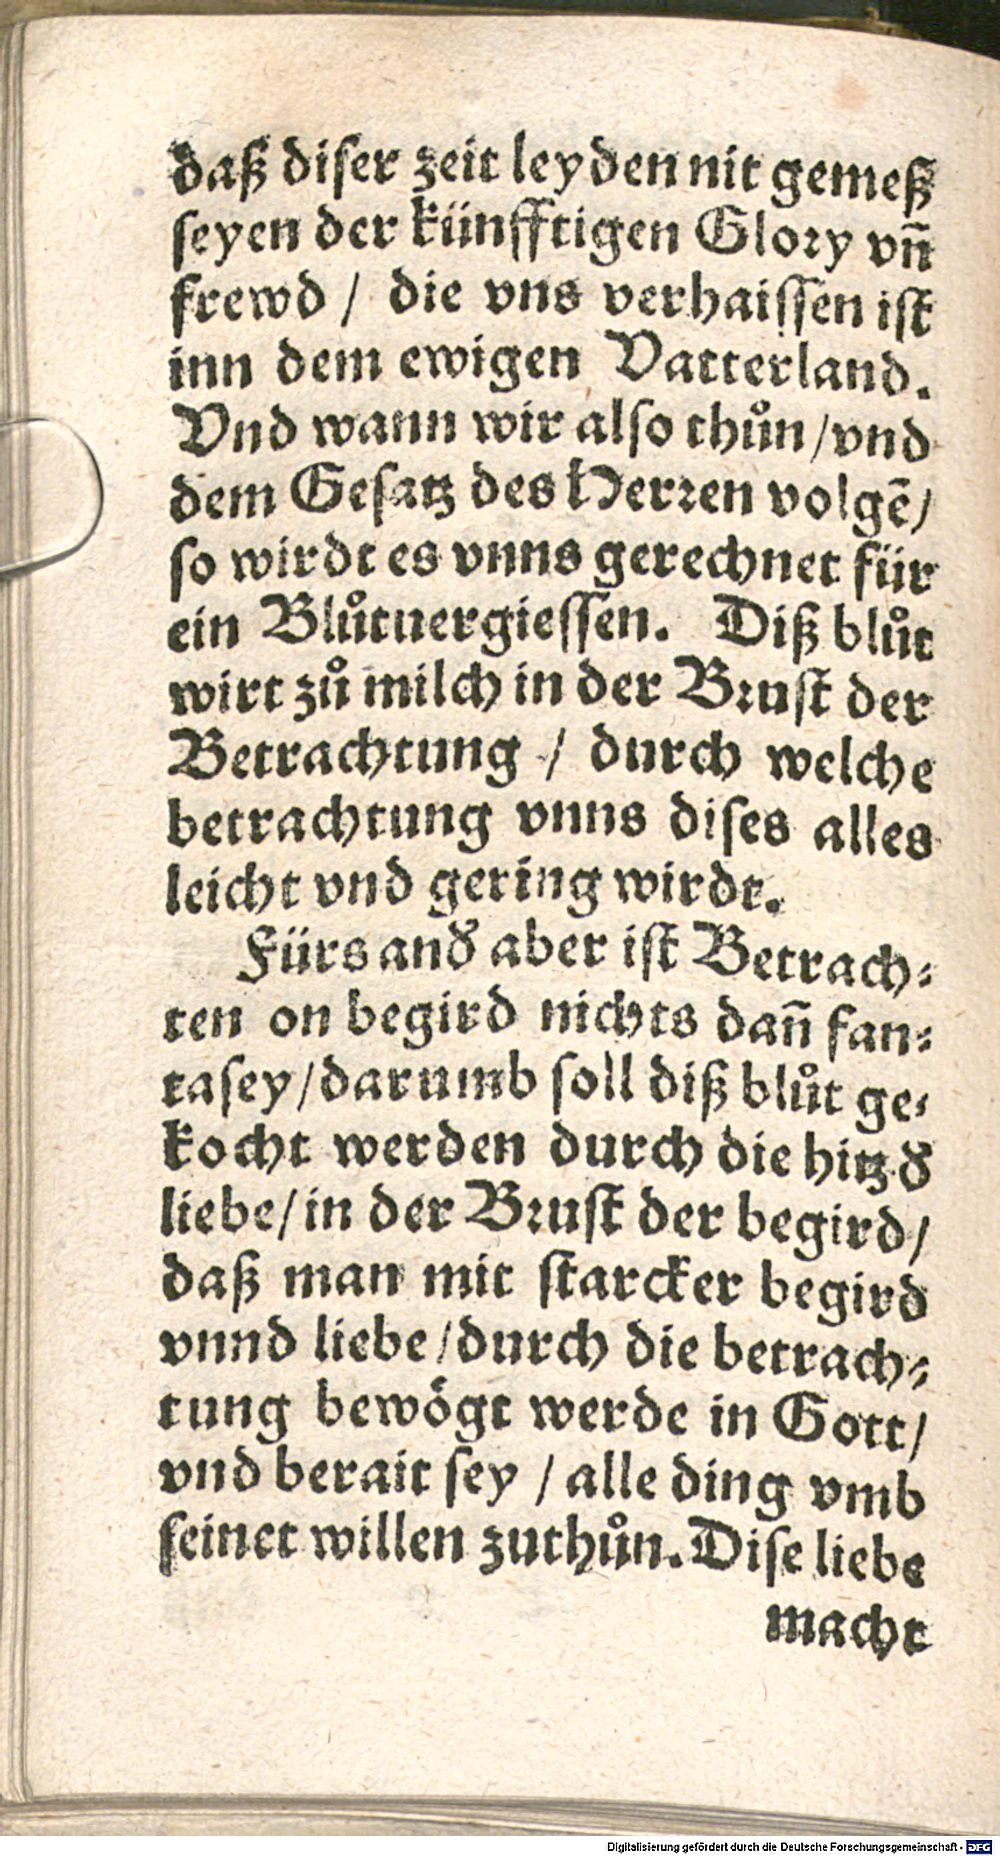 daß diser zeit leyden nit gemeß
seyen der künfftigen Glory vn̄
frewd / die vns verhaissen ist
inn dem ewigen Vatterland.
Vnd wann wir also thůn / vnd
dem Gesatz des Herren volgē /
so wirdt es vnns gerechnet für
ein Blůtuergiessen. Diß blůt
wirt zů milch in der Brust der
Betrachtung / durch welche
betrachtung vnns dises alles
leicht vnd gering wirdt.
Fürs and̕ aber ist Betrach⸗
ten on begird nichts dan̄ fan⸗
tasey / darumb soll diß blůt ge⸗
kocht werden durch die hitz d̕
liebe / in der Brust der begird /
daß man mit starcker begird
vnnd liebe / durch die betrach⸗
tung bewögt werde in Gott /
vnd berait sey / alle ding vmb
seinet willen zuthůn. Dise liebe
macht
Digitalisierung gefördert durch die Deutsche Forschungsgemeinschaft - DFG